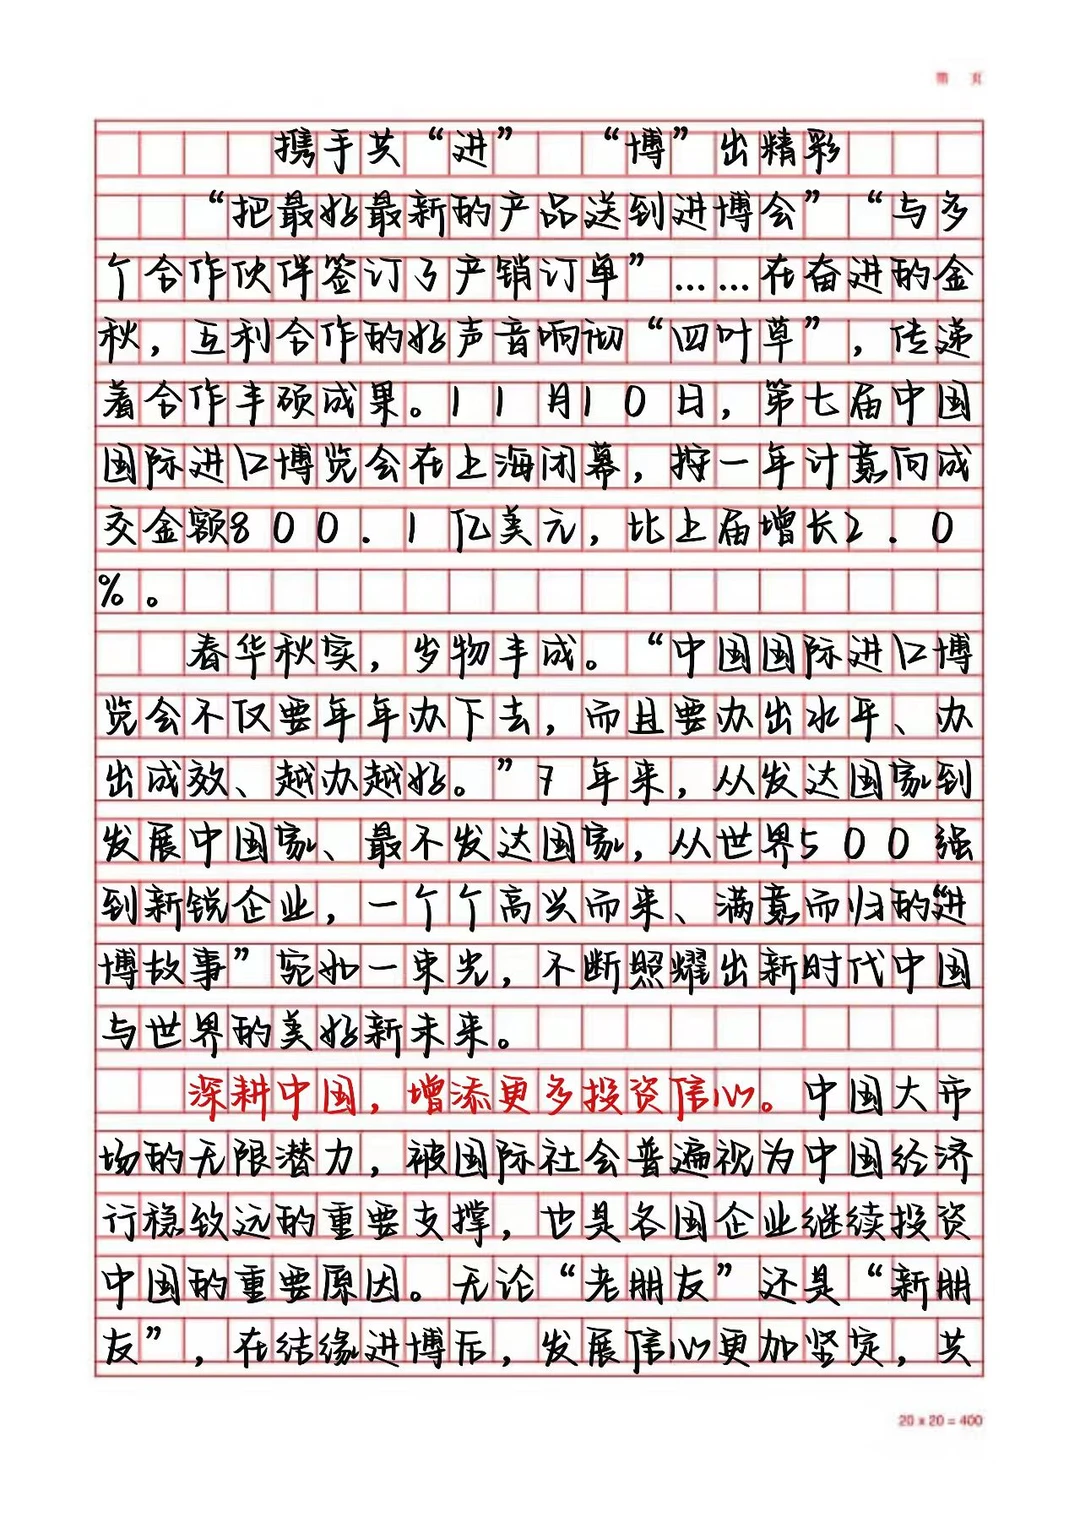 第 页
携手共“进” “博”出精彩
“把最好最新的产品送到进博会”“与多
个合作伙伴签订了产销订单”……在奋进的金
秋，互利合作的好声音响彻“四叶草”，传递
着合作丰硕成果。11月10日，第七届中国
国际进口博览会在上海闭幕，按一年计意向成
交金额800.1亿美元，比上届增长2.0
%。
春华秋实，岁物丰成。“中国国际进口博
览会不仅要年年办下去，而且要办出水平、办
出成效、越办越好。”7年来，从发达国家到
发展中国家、最不发达国家，从世界500强
到新锐企业，一个个高兴而来、满意而归的“进
博故事”宛如一束光，不断照耀出新时代中国
与世界的美好新未来。
深耕中国，增添更多投资信心。中国大市
场的无限潜力，被国际社会普遍视为中国经济
行稳致远的重要支撑，也是各国企业继续投资
中国的重要原因。无论“老朋友”还是“新朋
友”，在结缘进博后，发展信心更加坚定，共
20×20=400